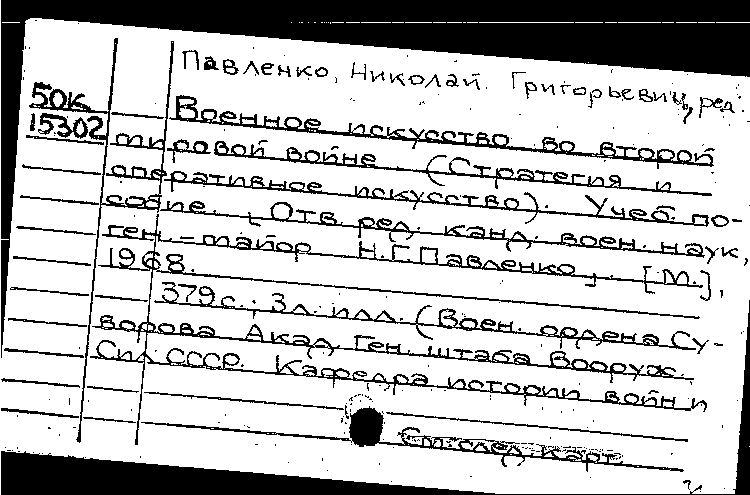 Павленко, Николай Григорьевич, ред.
50к
15302
Военное искусство во второй
мировой войне. (Стратегия и
оперативное искусство). Учеб. по-
собие. [Отв. ред. канд. воен. наук,
ген.-майор Н.Г. Павленко]. [М.],
1968.
379 с.; 3 л. илл. (Воен. ордена Су-
ворова Акад. Ген. штаба Вооруж.
Сил СССР. Кафедра истории войн и
См. след. карт.